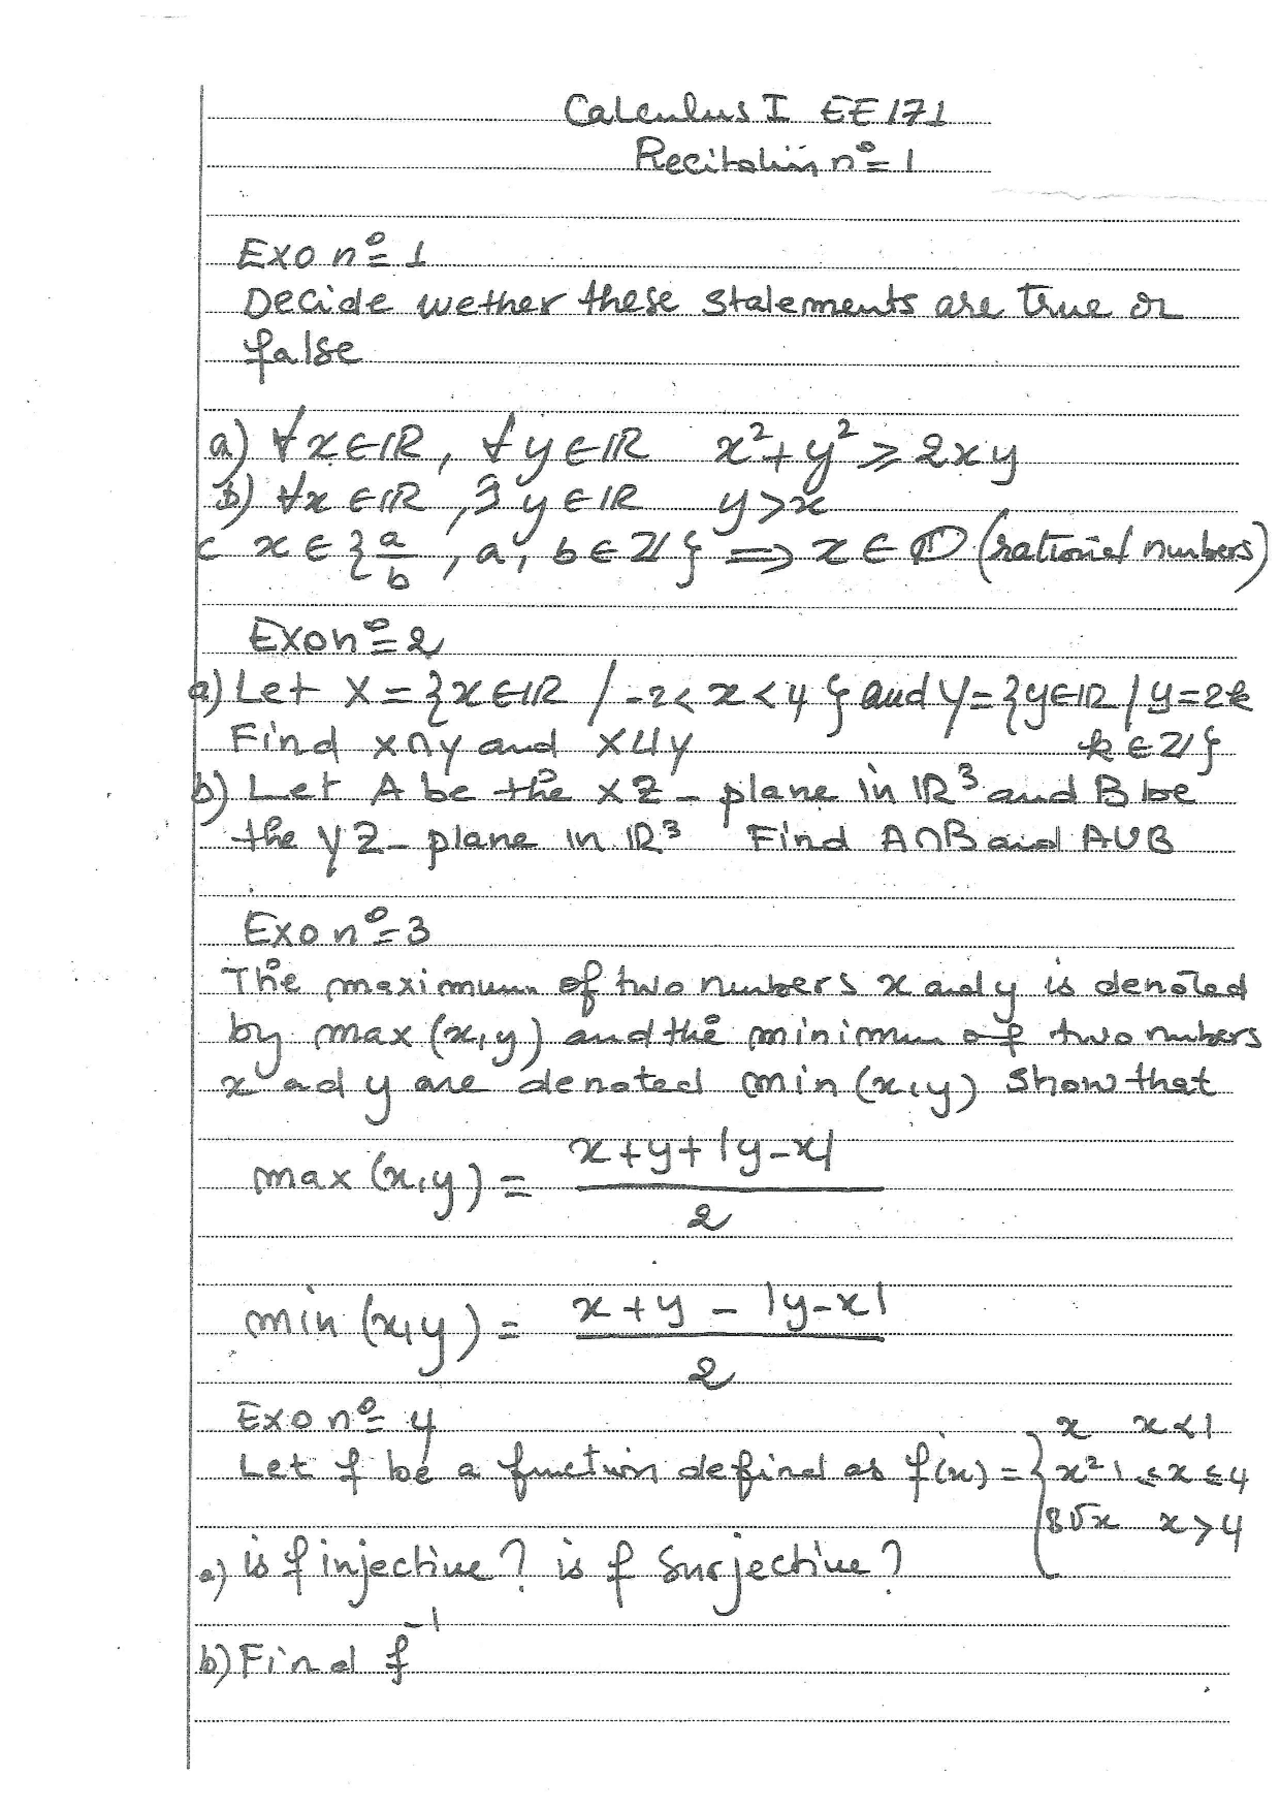 Calculus I EE171
Recitation nº=1
Exo nº=1
Decide wether these statements are true or
false
a) ∀x∈ℝ, ∀y∈ℝ x²+y²⩾2xy
b) ∀x∈ℝ, ∃y∈ℝ y>x
c x∈{a/b, a, b∈ℤ} ⟹ x∈ℚ (rational numbers)
Exo nº=2
a) Let X={x∈ℝ / -2<x<4} and Y={y∈ℝ / y=2k
Find X∩Y and X∪Y k∈ℤ}
b) Let A be the XZ-plane in ℝ³ and B be
the YZ-plane in ℝ³ Find A∩B and A∪B
Exo nº=3
The maximum of two numbers x and y is denoted
by max(x,y) and the minimum of two numbers
x and y are denoted min(x,y) Show that
max(x,y) = (x+y+|y-x|)/2
min(x,y) = (x+y-|y-x|)/2
Exo nº=4
Let f be a function defined as f(x) = { x x<1
x² 1≤x≤4
8√x x>4
a) is f injective? is f Surjective?
b) Find f⁻¹